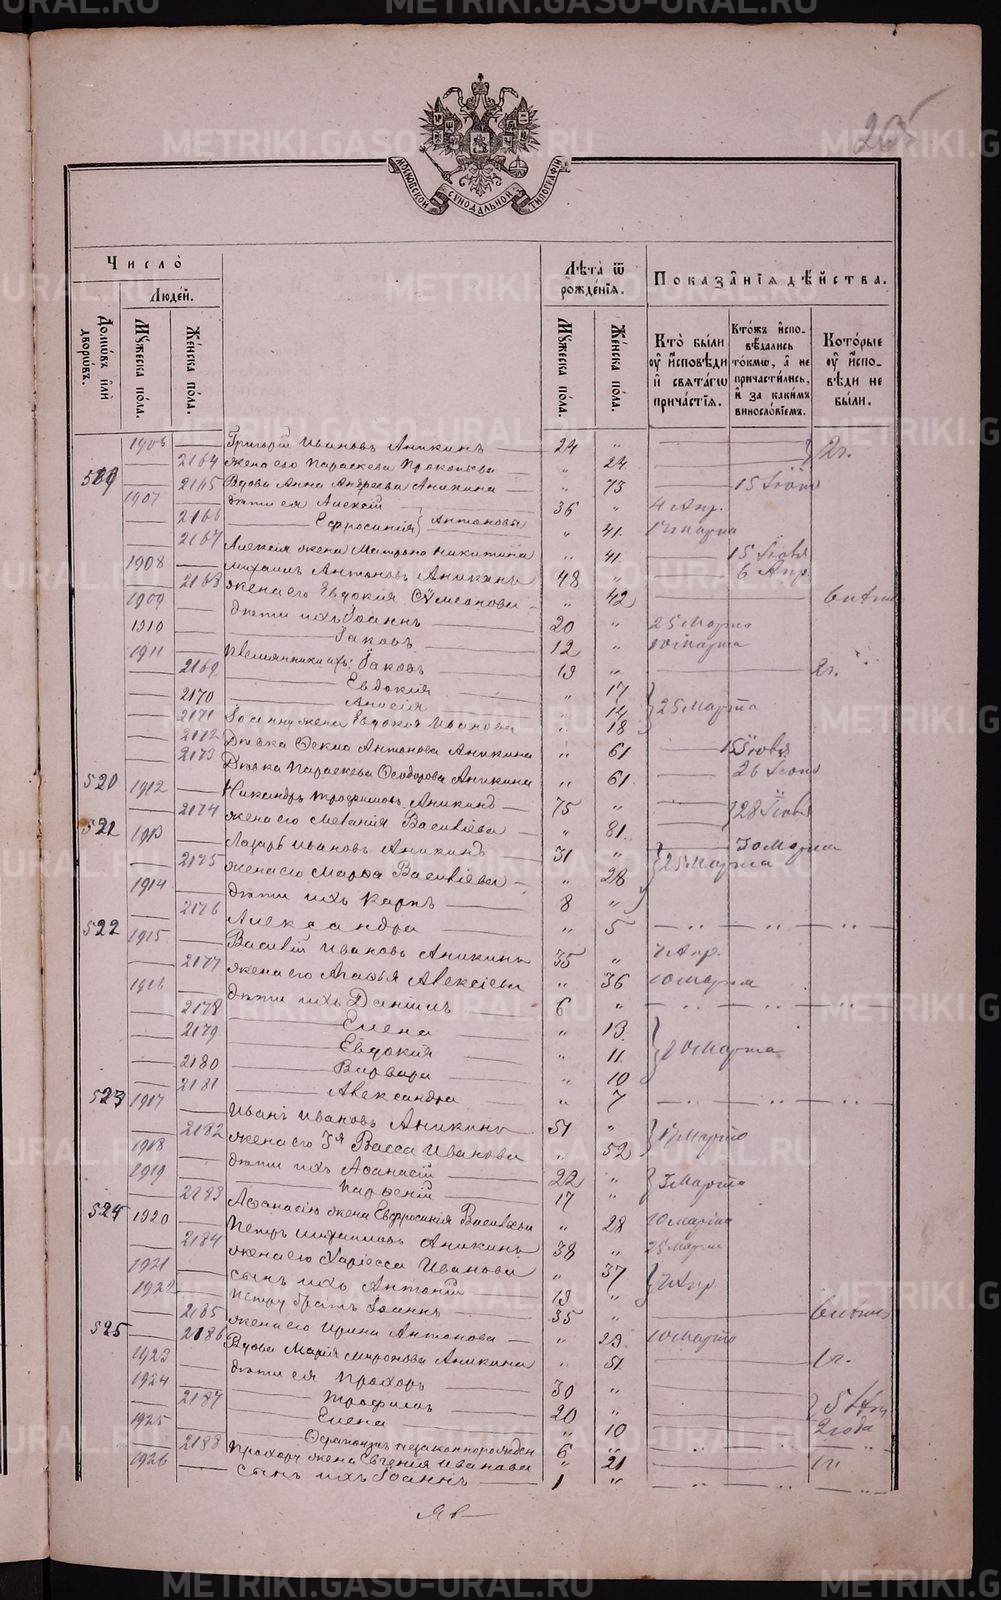 205
МОСКОВСКОЙ СѴНОДАЛЬНОЙ ТИПОГРАФІИ
Число̀
Людей.
Домѡвъ или дворѡвъ.
Мꙋжеска пола.
Женска пола.
Лѣта ѿ рожденїѧ.
Мꙋжеска пола.
Женска пола.
Показанїѧ дѣйства.
Кто были оу исповѣди и свѧтагѡ причастїѧ.
Ктожъ исповѣдались токмѡ, а не причастились, и за какимъ винословїемъ.
Которые оу исповѣди не были.
1906 Григорій Ивановъ Аникинъ 24 „ 2 г.
2164 жена его Параскева Прокопьева „ 24
519 2165 Вдова Анна Андреева Аникина „ 73 15
1907 дѣти ея Алексій 36 „ 4 Апр.
2166 Ефросинія } Антоновы „ 41 Марта
2167 Алексія жена Матрона Никитина „ 41 15
1908 Михаилъ Антоновъ Аникинъ 48 „ 6 Апр.
2168 жена его Евдокия Сѵмеонова „ 42
1909 дѣти ихъ Іоаннъ 20 „ 25 Марта
1910 Іаковъ 12 „ Марта
1911 племянники ихъ: Іаковъ 19 „ 2 г.
2169 Евдокія „ 17
2170 Анисія „ 14 } 25 Марта
2171 Іоанну жена Евдокия Иванова „ 18
2172 Дѣвка Ѳекла Антонова Аникина „ 61
2173 Дѣвка Параскева Ѳеодорова Аникина „ 61 26
520 1912 Никандръ Трофимовъ Аникинъ 75 „
2174 жена его Меланія Васильева „ 81 } 28
521 1913 Лазарь Ивановъ Аникинъ 31 „ Марта
2175 жена его Марѳа Васильева „ 28 } 25 Марта
1914 дѣти ихъ Карпъ 8 „
2176 Александра „ 5
522 1915 Василій Ивановъ Аникинъ 35 „ Апр.
2177 жена его Агаѳья Алексіева „ 36 10 Марта
1916 дѣти ихъ Даніилъ 6 „
2178 Елена „ 13
2179 Евдокія „ 11 } Марта
2180 Варвара „ 10
2181 Александра „ 7
523 1917 Иванъ Ивановъ Аникинъ 51 „
2182 жена его 3я Васса Иванова „ 52 } Марта
1918 дѣти ихъ Аѳанасій 22 „
1919 Парѳеній 17 „ } Марта
2183 Аѳанасію жена Евфросинія Васильева „ 28 10 Марта
524 1920 Петръ Михаиловъ Аникинъ 38 „ 25 Марта
2184 жена его Харіесса Иванова „ 37
1921 сынъ ихъ Антоній 19 „ } Апр.
1922 Петру братъ Іоаннъ 35 „
2185 жена его Ирина Антонова „ 23 10 Марта
525 2186 Вдова Марія Миронова Аникина „ 51 1 г.
1923 дѣти ея Прохоръ 30 „
1924 Трофимъ 20 „ } 5
2187 Елена „ 10 2 года
1925 незаконнорожден 6 „
2188 Прохору жена Евгенія Иванова „ 21 1 г.
1926 сынъ ихъ Іоаннъ 1 „
METRIKI.GASO-URAL.RU